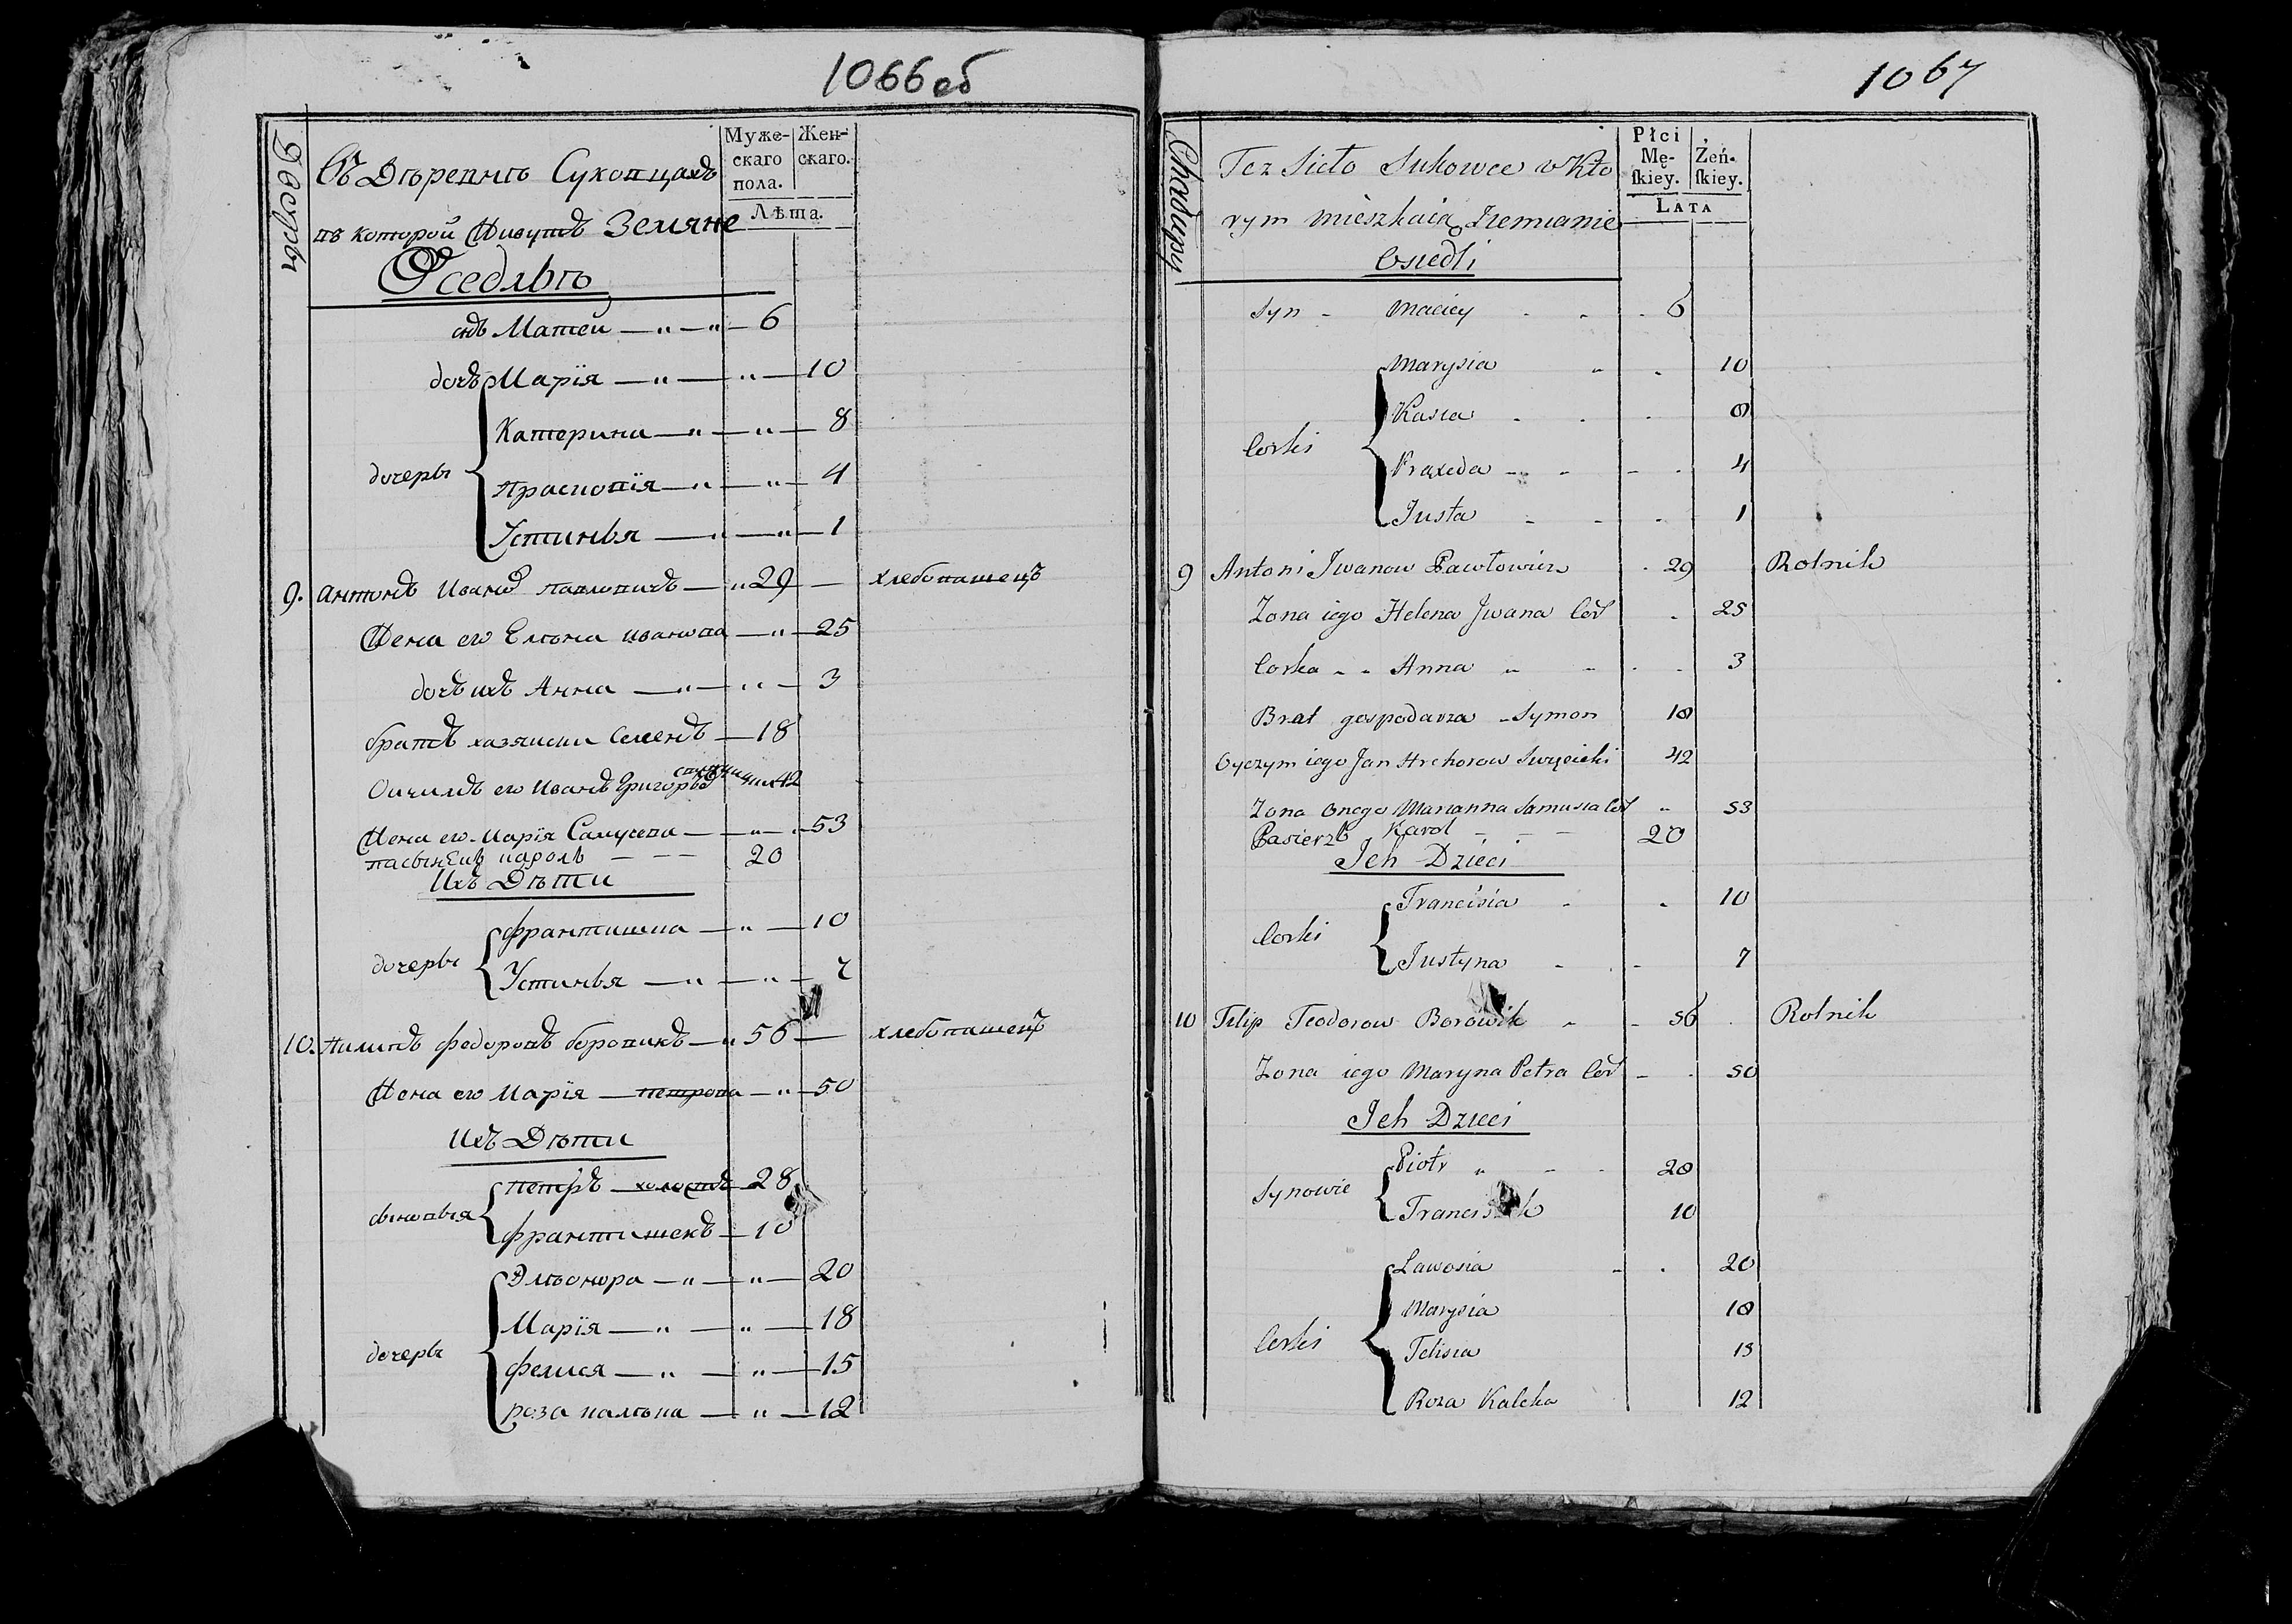 1066 об
Въ Дѣревнѣ Суховцахъ
въ которой Живутъ Земяне
Оседлыѣ
Муже-
скаго
пола.
Жен-
скаго.
Лѣта.
Матей — „ — „ — 6
дочъ Марія — „ — „ — 10
Катерина — „ — „ — 8
дочеры
Прасковія — „ — „ — 4
Устинья — „ — „ — 1
9. Антонъ Ивановъ Павловичъ — „ 29 — хлебопашецъ
Жена его Елѣна Иванова — „ — 25
дочъ ихъ Анна — „ — „ — 3
братъ хазяина Семенъ — 18
Отчимъ его Иванъ Григорьевъ 42
Жена его Марія Самусева — „ — 53
пасынокъ Кароль — — — 20
Ихъ Дѣти
Франтишка — „ — 10
дочеры
Устинья — „ — „ — 7
10. Филипъ Федоровъ Боровикъ — „ 56 — хлебопашецъ
Жена его Марія — Петрова — „ — 50
Ихъ Дѣти
Петръ — холостъ — 28
сыновья
Франтишекъ — 10
Элѣонора — „ — „ — 20
Марія — „ — „ — 18
дочеры
Фелися — „ — „ — 15
Роза Калѣка — „ — 12
1067
Chałupy
Też Sieło Sukowce w Kto
rym mieszkaią Ziemianie
Osiedli
Płci
Mę-
ſkiey.
Żeń-
ſkiey.
LATA
Syn - Maciey - - - 6
Marysia - - 10
Kasia - - - 8
Corki
Praxeda - - - - 4
Justa - - - 1
9 Antoni Iwanow Pawłowicz - 29 Rolnik
Zona iego Helena Iwana Cor - 25
Corka - - Anna - - - - 3
Brat gospodarza - Symon 18
Oyczym iego Jan Hrehorow Swięcicki 42
Zona Onego Marianna Samusia Cor „ 53
Pasierzb Karol - - - 20
Ich Dzieci
Francisia - - 10
Corki
Justyna - - - 7
10 Filip Teodorow Borowik - - 56 Rolnik
Zona iego Maryna Petra Cor - - 50
Ich Dzieci
Piotr „ - - 28
Synowie
Franciszek 10
Lawosia - - 20
Marysia 18
Corki
Felisia 15
Roza Kaleka 12